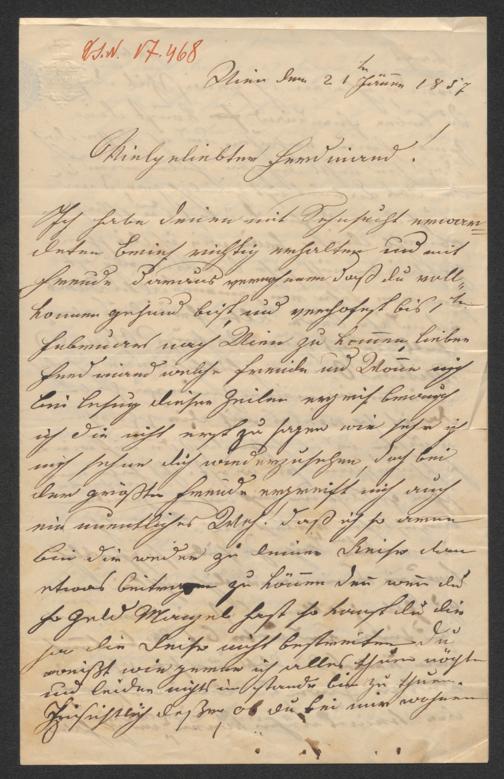 I.N. 17.468
Wien den 21ten Jänner 1857
Vielgeliebter Ferdinand!
Ich habe deinen mit Sehnsucht erwar=
deten Brief richtig erhalten und mit
Freude daraus vernohmen daß du voll=
komen gesund bist, und verhofest bis 1ten
Februars nach Wien zu kommen, lieber
Ferdinand welche Freude und Wonne mich
bei lesung dieser Zeilen ergreif brauch
ich dir nicht erst zu sagen wie sehr ich
mich sehne dich wiederzusehen, doch bei
der größten Freude ergreift mich auch
ein unentliches Weh! daß ich so arm
bin dir weder zu deiner Reise kan
etwas beitragen zu können den wen du
so Geld Mangel hast so kanst du dir
ja die Reise nicht bestreiten du
weißt wie gerne ich alles thuen möchte
und leider nichts im stande bin zu thuen.
Hinsichtlich dessen ob du bei mir wohnen